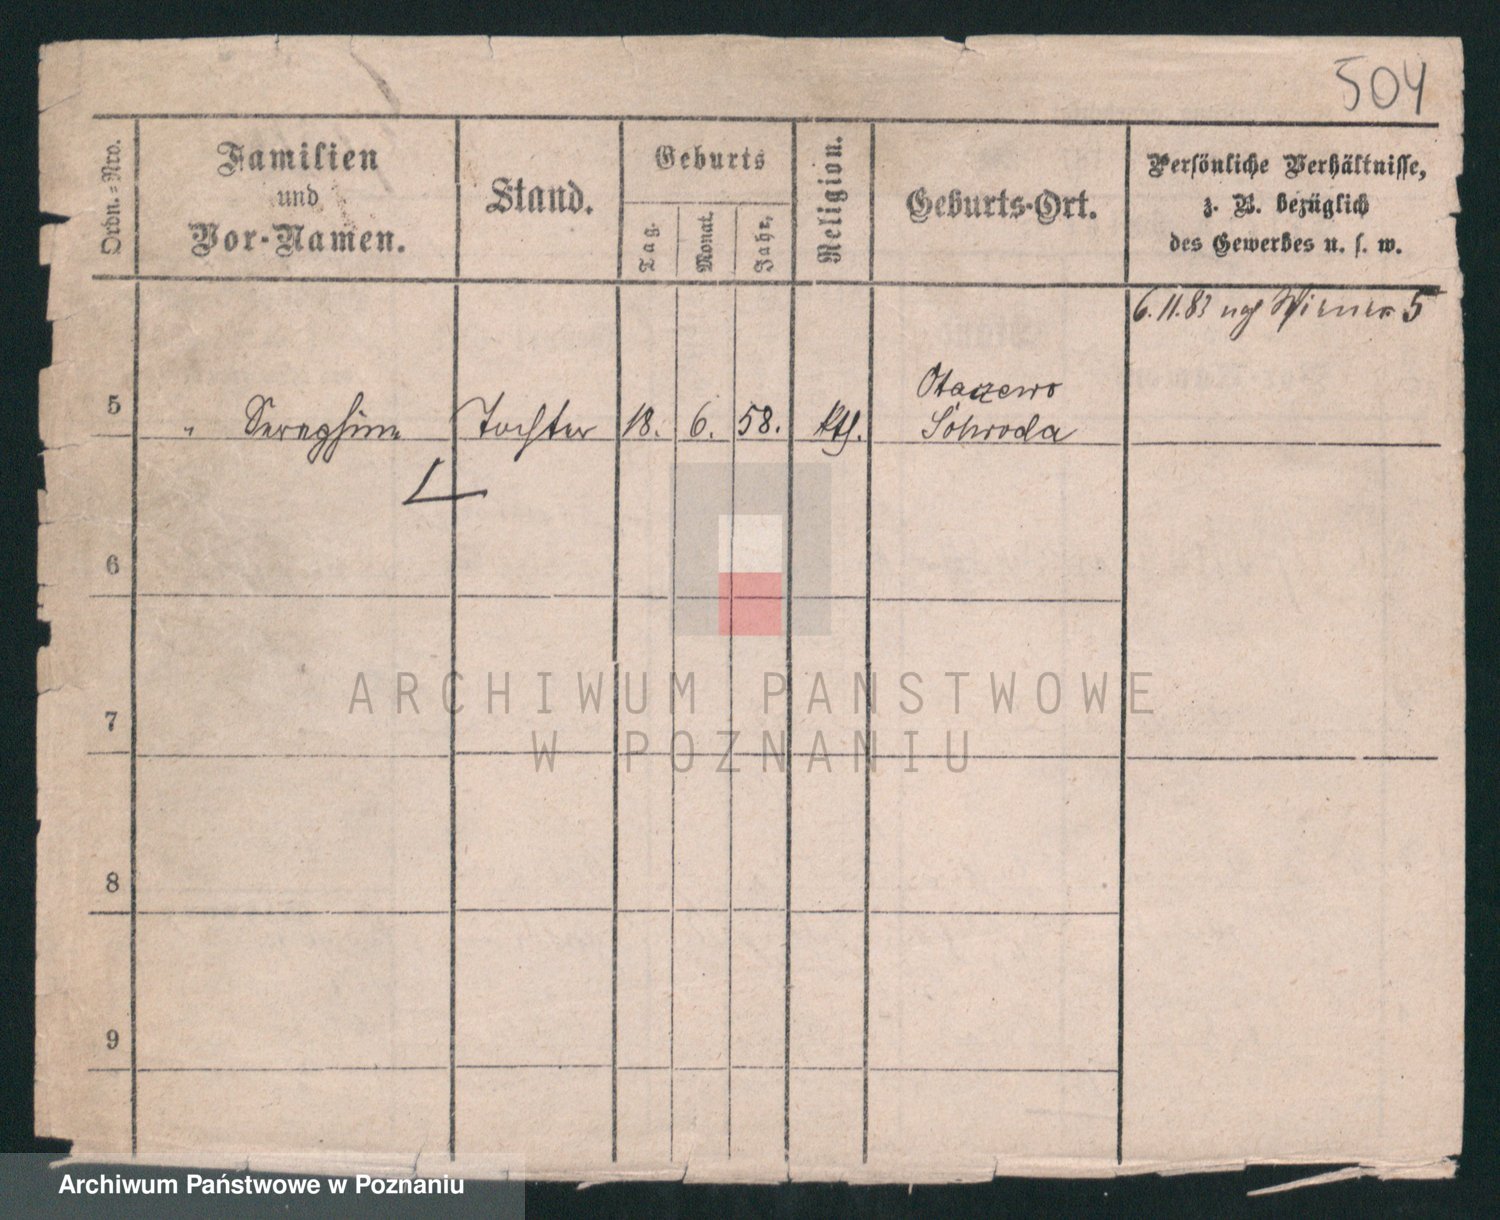 504
Ordn.-Nro.
Familien
und
Vor-Namen.
Stand.
Geburts
Tag.
Monat.
Jahr.
Religion.
Geburts-Ort.
Persönliche Verhältnisse,
z. B. bezüglich
des Gewerbes u. s. w.
6.11.83 Wiener 5
5 " Seraphine Tochter 18. 6. 58. kth.
Schroda
6
7
8
9
ARCHIWUM PANSTWOWE
W POZNANIU
Archiwum Państwowe w Poznaniu